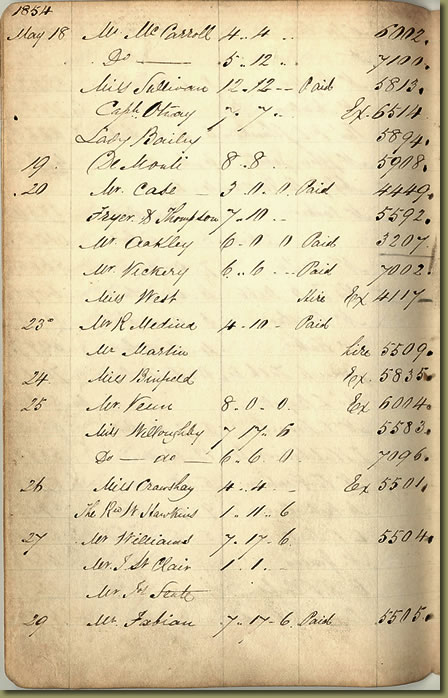 1854
May 18 Mr. McCarroll 4 .. 4 .. 6002.
Do — 5 .. 12 .. 7100.
Miss Sullivan 12 .. 12 .. Paid 5813.
Capt. Otway 7 .. 7 .. Ex 6514
Lady Bailey 5894.
19 De Monti 8 .. 8 .. 5908.
20 Mr. Case — 3 .. 0 .. 0 Paid 4449.
Fryer & Thompson 7 .. 10 .. 5592.
Mr. Oakley 6 .. 0 .. 0 Paid 3207.
Mr. Vickery 6 .. 6 .. Paid 7002.
Miss West Hire Ex 4117
23 Mr R Medina 4 .. 10 — Paid
Mr Martin hire 5509.
24 Miss Binfield Ex. 5835.
25 Mr. Venn 8 .. 0 .. 0. Ex 6004.
Miss Willoughby 7 17 .. 6 5583.
Do — do — 6 .. 6 .. 0 7096.
26 Miss Crawshay 4 .. 4 .. Ex 5501.
The Revd W Hawkins 1 .. 11 .. 6
27 Mr Williams 7 .. 17 .. 6. 5504.
Mr. J St Clair 1 .. 1 ..
Mr
29 Mr. Fabian 7 .. 17 .. 6. Paid 5505.